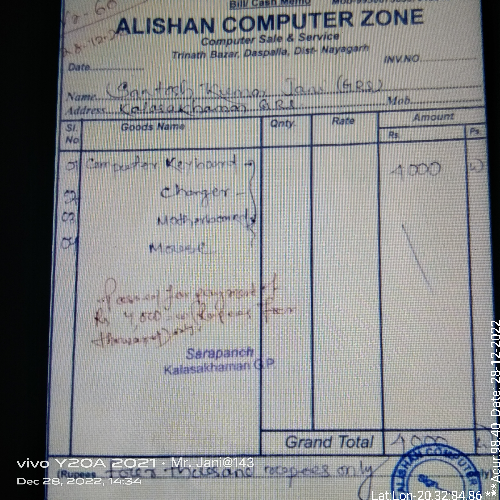 Bill/Cash Memo
ALISHAN COMPUTER ZONE
Computer Sale & Service
Trinath Bazar, Daspalla, Dist- Nayagarh
Date
INV.NO.
Name Santosh Kumar Jani (GRS)
Address Kalasakhaman
Mob.
Sl. No
Goods Name
Qnty.
Rate
Amount
Rs.
Ps.
01 Computer Keyboard
4000
02 Charger
03 Motherboard
04 Mouse
Passed for payment of
Rs 4,000
Sarapanch
Kalasakhaman G.P.
Grand Total 4000
Rupees Four Thousand rupees only
ALISHAN COMPUTER
vivo Y20A 2021 · Mr. Jani@143
Dec 28, 2022, 14:34
Date: 28-12-2022
Lat Lon-20.32,84.86